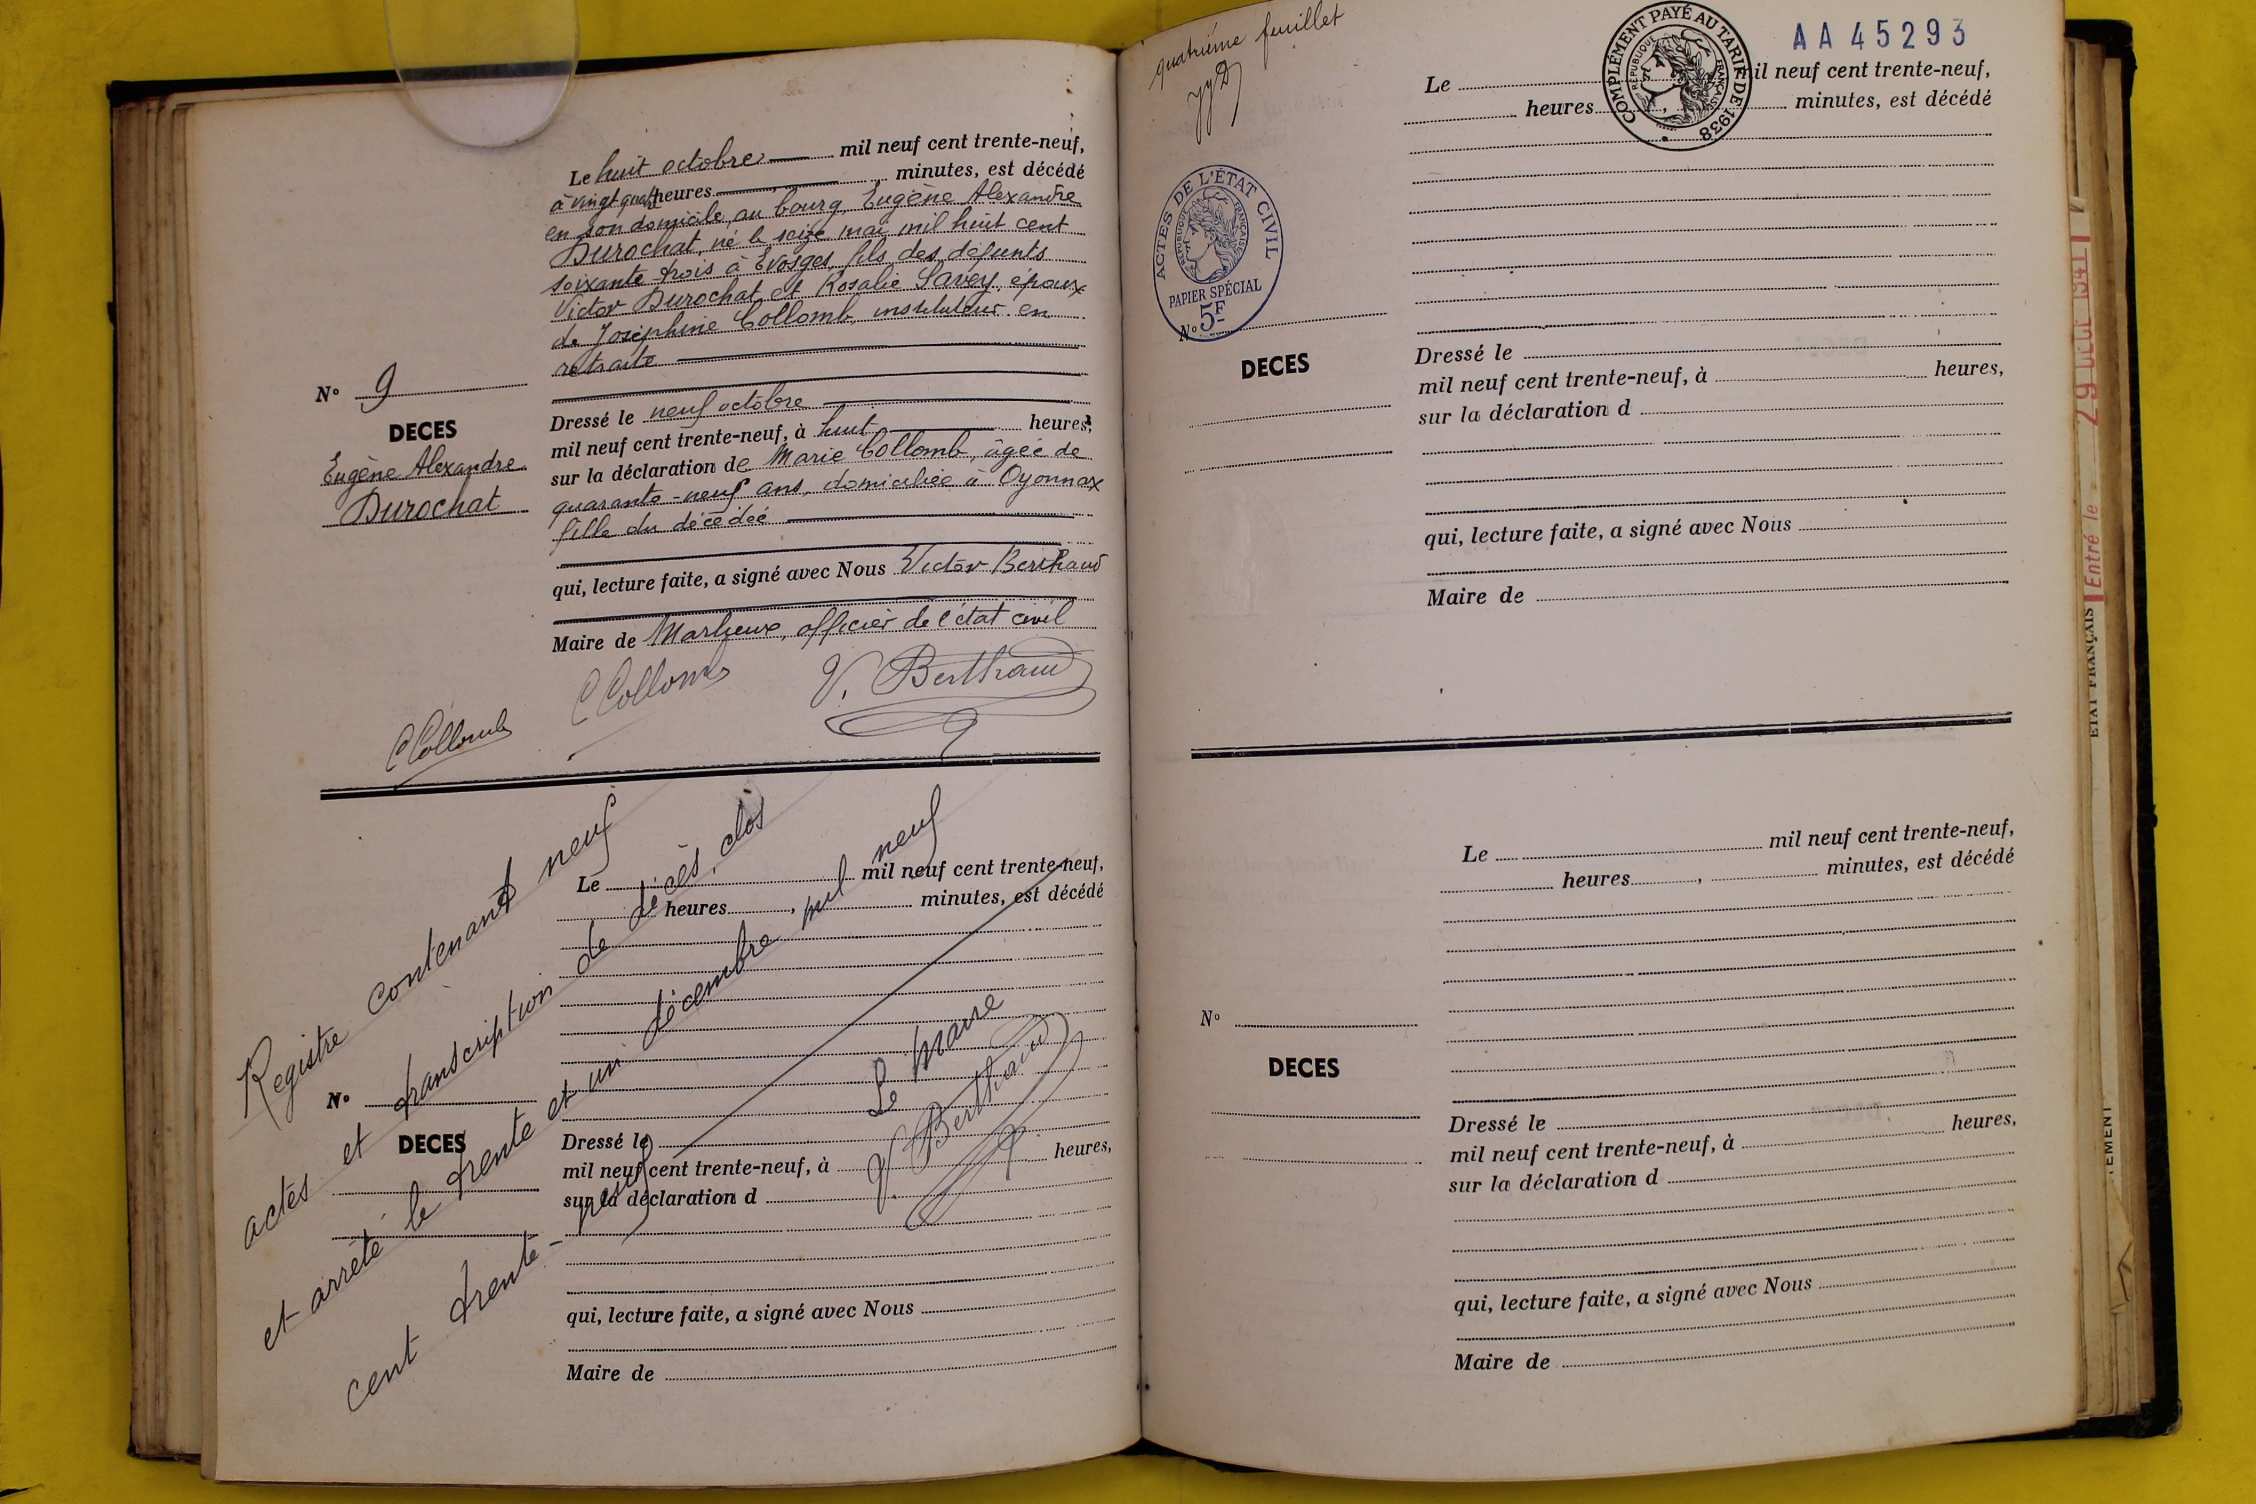 Le huit octobre mil neuf cent trente-neuf,
à vingt quatre heures minutes, est décédé
en son domicile, au bourg, Eugène Alexandre
Durochat, né le seize mai mil huit cent
soixante-trois à Evosges, fils des défunts
Victor Durochat et Rosalie Savey, époux
de Joséphine Collomb, instituteur en
retraite
N° 9
DECES
Eugène Alexandre
Durochat
Dressé le neuf octobre
mil neuf cent trente-neuf, à huit heures,
sur la déclaration de Marie Collomb, âgée de
quarante-neuf ans, domiciliée à Oyonnax
fille du décédé
qui, lecture faite, a signé avec Nous Victor Berthaud
Maire de Marlieux, officier de l'état civil
C Collomb V. Berthaud
C Collomb
Registre contenant neuf
actes et transcription de décès, clos
et arrêté le trente et un décembre mil neuf
cent trente-neuf
Le Maire
V. Berthaud
Le mil neuf cent trente-neuf,
heures , minutes, est décédé
N°
DECES
Dressé le
mil neuf cent trente-neuf, à heures,
sur la déclaration d
qui, lecture faite, a signé avec Nous
Maire de
quatrième feuillet
AA 45293
COMPLÉMENT PAYÉ AU TARIF DE 1938
RÉPUBLIQUE FRANÇAISE
Le mil neuf cent trente-neuf,
heures , minutes, est décédé
ACTES DE L'ÉTAT CIVIL
RÉPUBLIQUE FRANÇAISE
PAPIER SPÉCIAL
5F
N°
DECES
Dressé le
mil neuf cent trente-neuf, à heures,
sur la déclaration d
qui, lecture faite, a signé avec Nous
Maire de
Le mil neuf cent trente-neuf,
heures , minutes, est décédé
N°
DECES
Dressé le
mil neuf cent trente-neuf, à heures,
sur la déclaration d
qui, lecture faite, a signé avec Nous
Maire de
Entré le 29 DEC 1941
ETAT FRANÇAIS